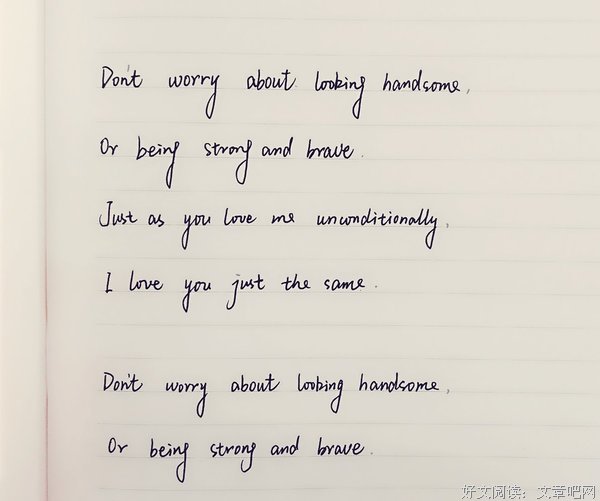 Don't worry about looking handsome,
Or being strong and brave.
Just as you love me unconditionally,
I love you just the same.
Don't worry about looking handsome,
Or being strong and brave.
好文阅读：文章吧网